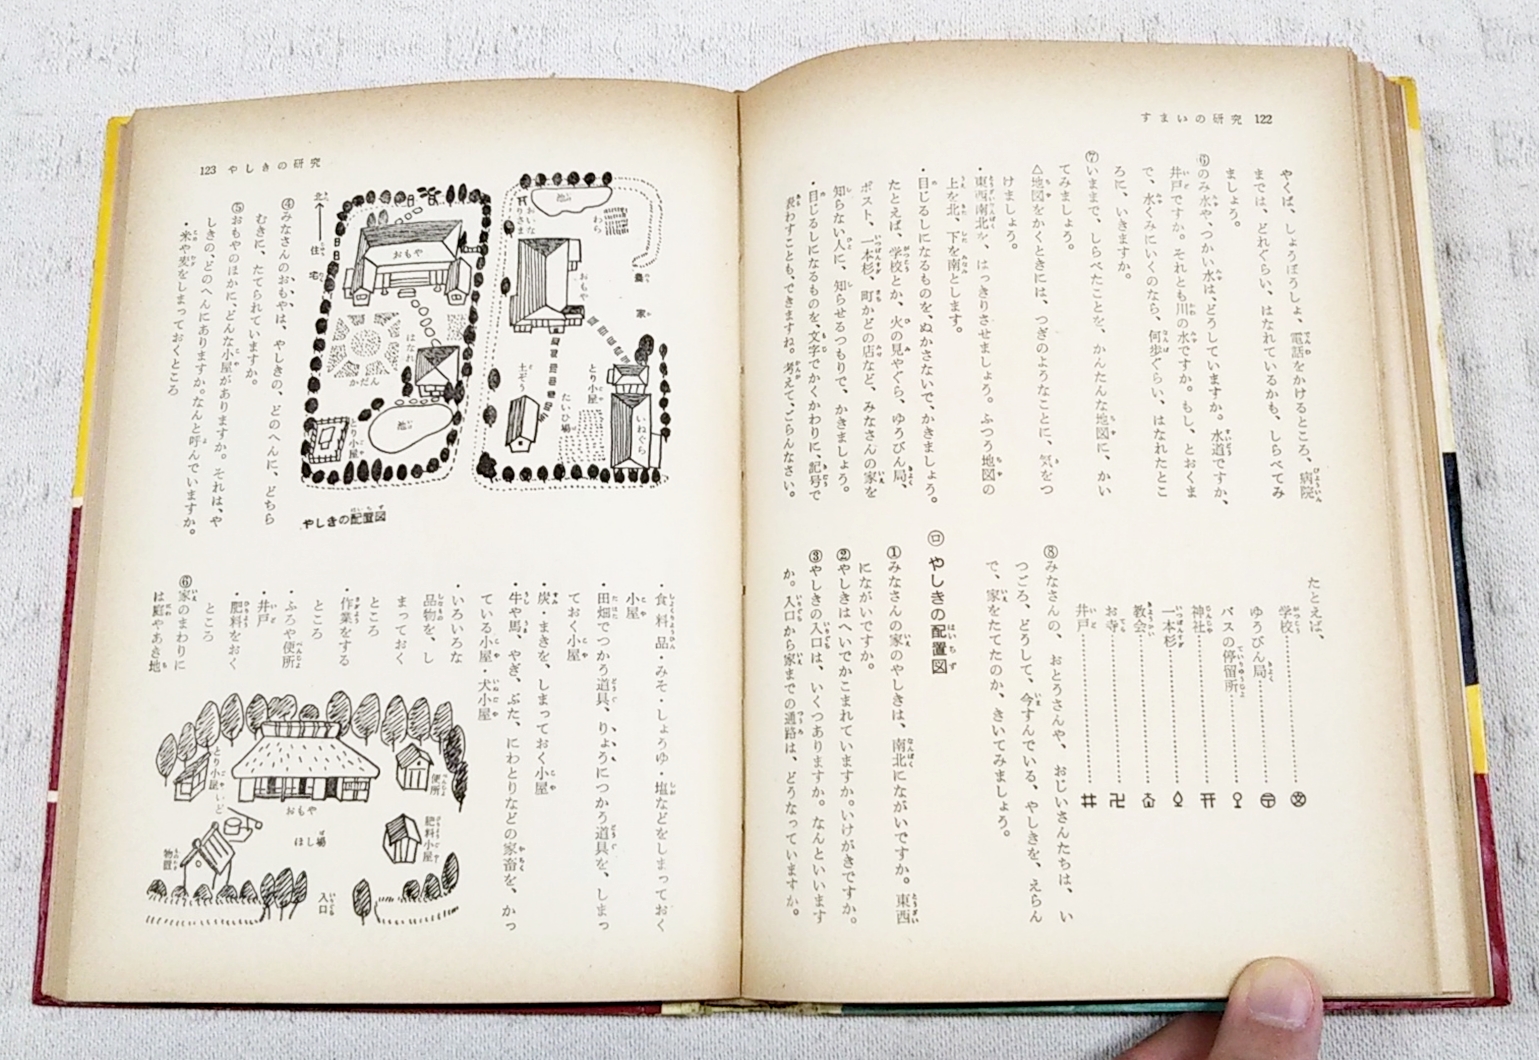 すまいの研究 122
やくば、しょうぼうしょ、電話をかけるところ、病院
までは、どれぐらい、はなれているかも、しらべてみ
ましょう。
⑥のみ水や、つかい水は、どうしていますか。水道ですか、
井戸ですか。それとも川の水ですか。もし、とおくま
で、水くみにいくのなら、何歩ぐらい、はなれたとこ
ろに、いきますか。
⑦いままで、しらべたことを、かんたんな地図に、かい
てみましょう。
△地図をかくときには、つぎのようなことに、気をつ
けましょう。
・東西南北を、はっきりさせましょう。ふつう地図の
上を北、下を南とします。
・目じるしになるものを、ぬかさないで、かきましょう。
たとえば、学校とか、火の見やぐら、ゆうびん局、
ポスト、一本杉、町かどの店など、みなさんの家を
知らない人に、知らせるつもりで、かきましょう。
・目じるしになるものを、文字でかくかわりに、記号で
表わすことも、できますね。考えて、ごらんなさい。
たとえば、
学校……文
ゆうびん局……〒
バスの停留所……
神社……
一本杉……
教会……
お寺……卍
井戸……井
⑧みなさんの、おとうさんや、おじいさんたちは、い
つごろ、どうして、今すんでいる、やしきを、えらん
で、家をたてたのか、きいてみましょう。
㋺ やしきの配置図
①みなさんの家のやしきは、南北にながいですか。東西
にながいですか。
②やしきはへいでかこまれていますか。いけがきですか。
③やしきの入口は、いくつありますか。なんといいます
か。入口から家までの通路は、どうなっていますか。
123 やしきの研究
池
わら
かいな
とりさま
おもや
農家
土ぞう
とり小屋
たいひ場
いねぐら
北
住宅
おもや
はなれ
かだん
池
とり小屋
やしきの配置図
④みなさんのおもやは、やしきの、どのへんに、どちら
むきに、たてられていますか。
⑤おもやのほかに、どんな小屋がありますか。それは、や
しきの、どのへんにありますか。なんと呼んでいますか。
・米や麦をしまっておくところ
・食料品・みそ・しょうゆ・塩などをしまっておく
小屋
・田畑でつかう道具、りょうにつかう道具を、しまっ
ておく小屋
・炭・まきを、しまっておく小屋
・牛や馬、やぎ、ぶた、にわとりなどの家畜を、かっ
ている小屋・犬小屋
・いろいろな
品物を、し
まっておく
ところ
・作業をする
ところ
・ふろや便所
・井戸
・肥料をおく
ところ
⑥家のまわりに
は庭やあき地
とり小屋
いど
おもや
便所
肥料小屋
ほし場
物置
入口